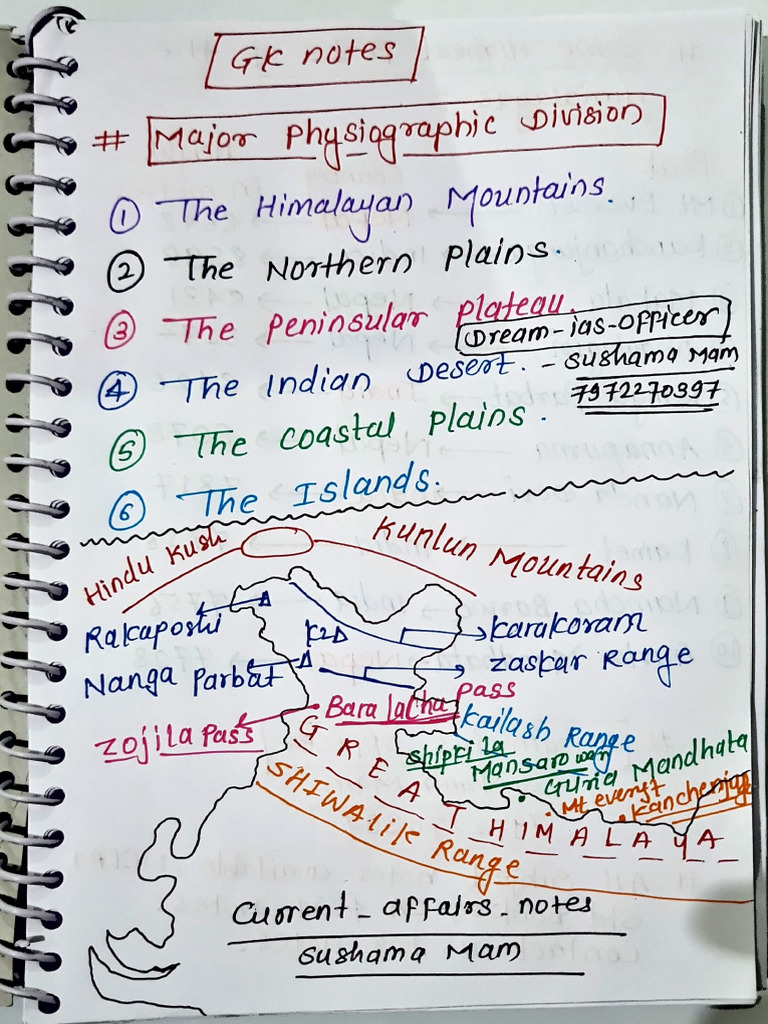 GK notes
# Major Physiographic Division
① The Himalayan Mountains.
② The Northern Plains.
③ The Peninsular Plateau.
Dream-ias-officer
④ The Indian Desert. - Sushama Mam
7972270397
⑤ The Coastal Plains.
⑥ The Islands.
Hindu Kush
Kunlun Mountains
Rakaposhi
K2
Karakoram
Nanga Parbat
Zaskar Range
Bara Lacha Pass
Zojila Pass
Kailash Range
Shipki la
Mansarowar
Gurla Mandhata
Mt everest
Kanchenjunga
GREAT HIMALAYA
SHIWALIK Range
Current-affairs-notes
Sushama Mam